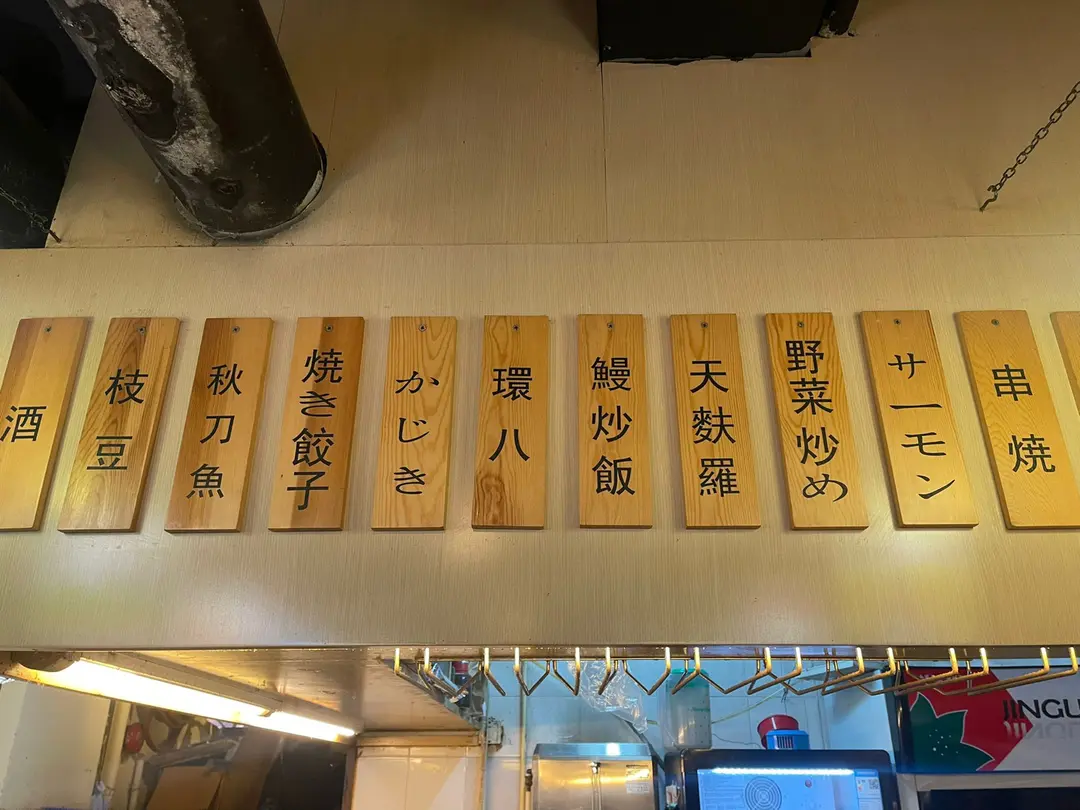 酒
枝豆
秋刀魚
焼き餃子
かじき
環八
鰻炒飯
天麩羅
野菜炒め
サーモン
串焼
JINGU